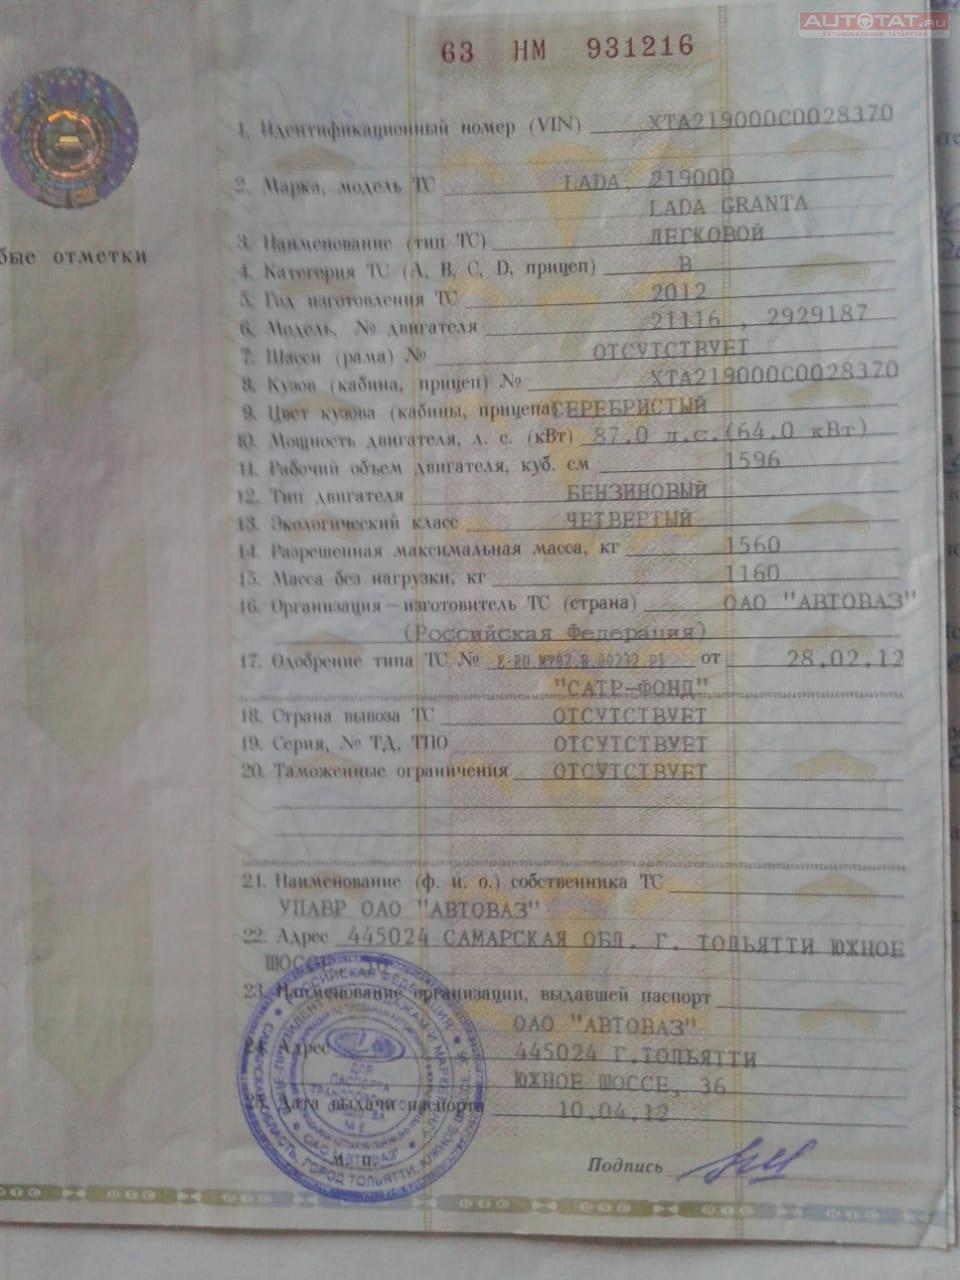 AUTOTAT.RU
АВТОМОБИЛЬНЫЙ ТАТАРСТАН
63 НМ 931216
1. Идентификационный номер (VIN) XTA219000C0028370
2. Марка, модель ТС LADA, 219000
LADA GRANTA
бые отметки
3. Наименование (тип ТС) ЛЕГКОВОЙ
4. Категория ТС (А, В, С, D, прицеп) В
5. Год изготовления ТС 2012
6. Модель, № двигателя 21116 , 2929187
7. Шасси (рама) № ОТСУТСТВУЕТ
8. Кузов (кабина, прицеп) № XTA219000C0028370
9. Цвет кузова (кабины, прицепа) СЕРЕБРИСТЫЙ
10. Мощность двигателя, л. с. (кВт) 87.0 л.с.(64.0 кВт)
11. Рабочий объем двигателя, куб. см 1596
12. Тип двигателя БЕНЗИНОВЫЙ
13. Экологический класс ЧЕТВЕРТЫЙ
14. Разрешенная максимальная масса, кг 1560
15. Масса без нагрузки, кг 1160
16. Организация — изготовитель ТС (страна) ОАО "АВТОВАЗ"
(Российская Федерация)
17. Одобрение типа ТС № E-RU.MT02.B.00232.P1 от 28.02.12
"САТР-ФОНД"
18. Страна вывоза ТС ОТСУТСТВУЕТ
19. Серия, № ТД, ТПО ОТСУТСТВУЕТ
20. Таможенные ограничения ОТСУТСТВУЕТ
21. Наименование (ф. и. о.) собственника ТС
УПАВР ОАО "АВТОВАЗ"
22. Адрес 445024 САМАРСКАЯ ОБЛ. Г. ТОЛЬЯТТИ ЮЖНОЕ
ШОССЕ
23. Наименование организации, выдавшей паспорт
ОАО "АВТОВАЗ"
Адрес 445024 Г.ТОЛЬЯТТИ
ЮЖНОЕ ШОССЕ, 36
Дата выдачи паспорта 10.04.12
М. П.
Подпись